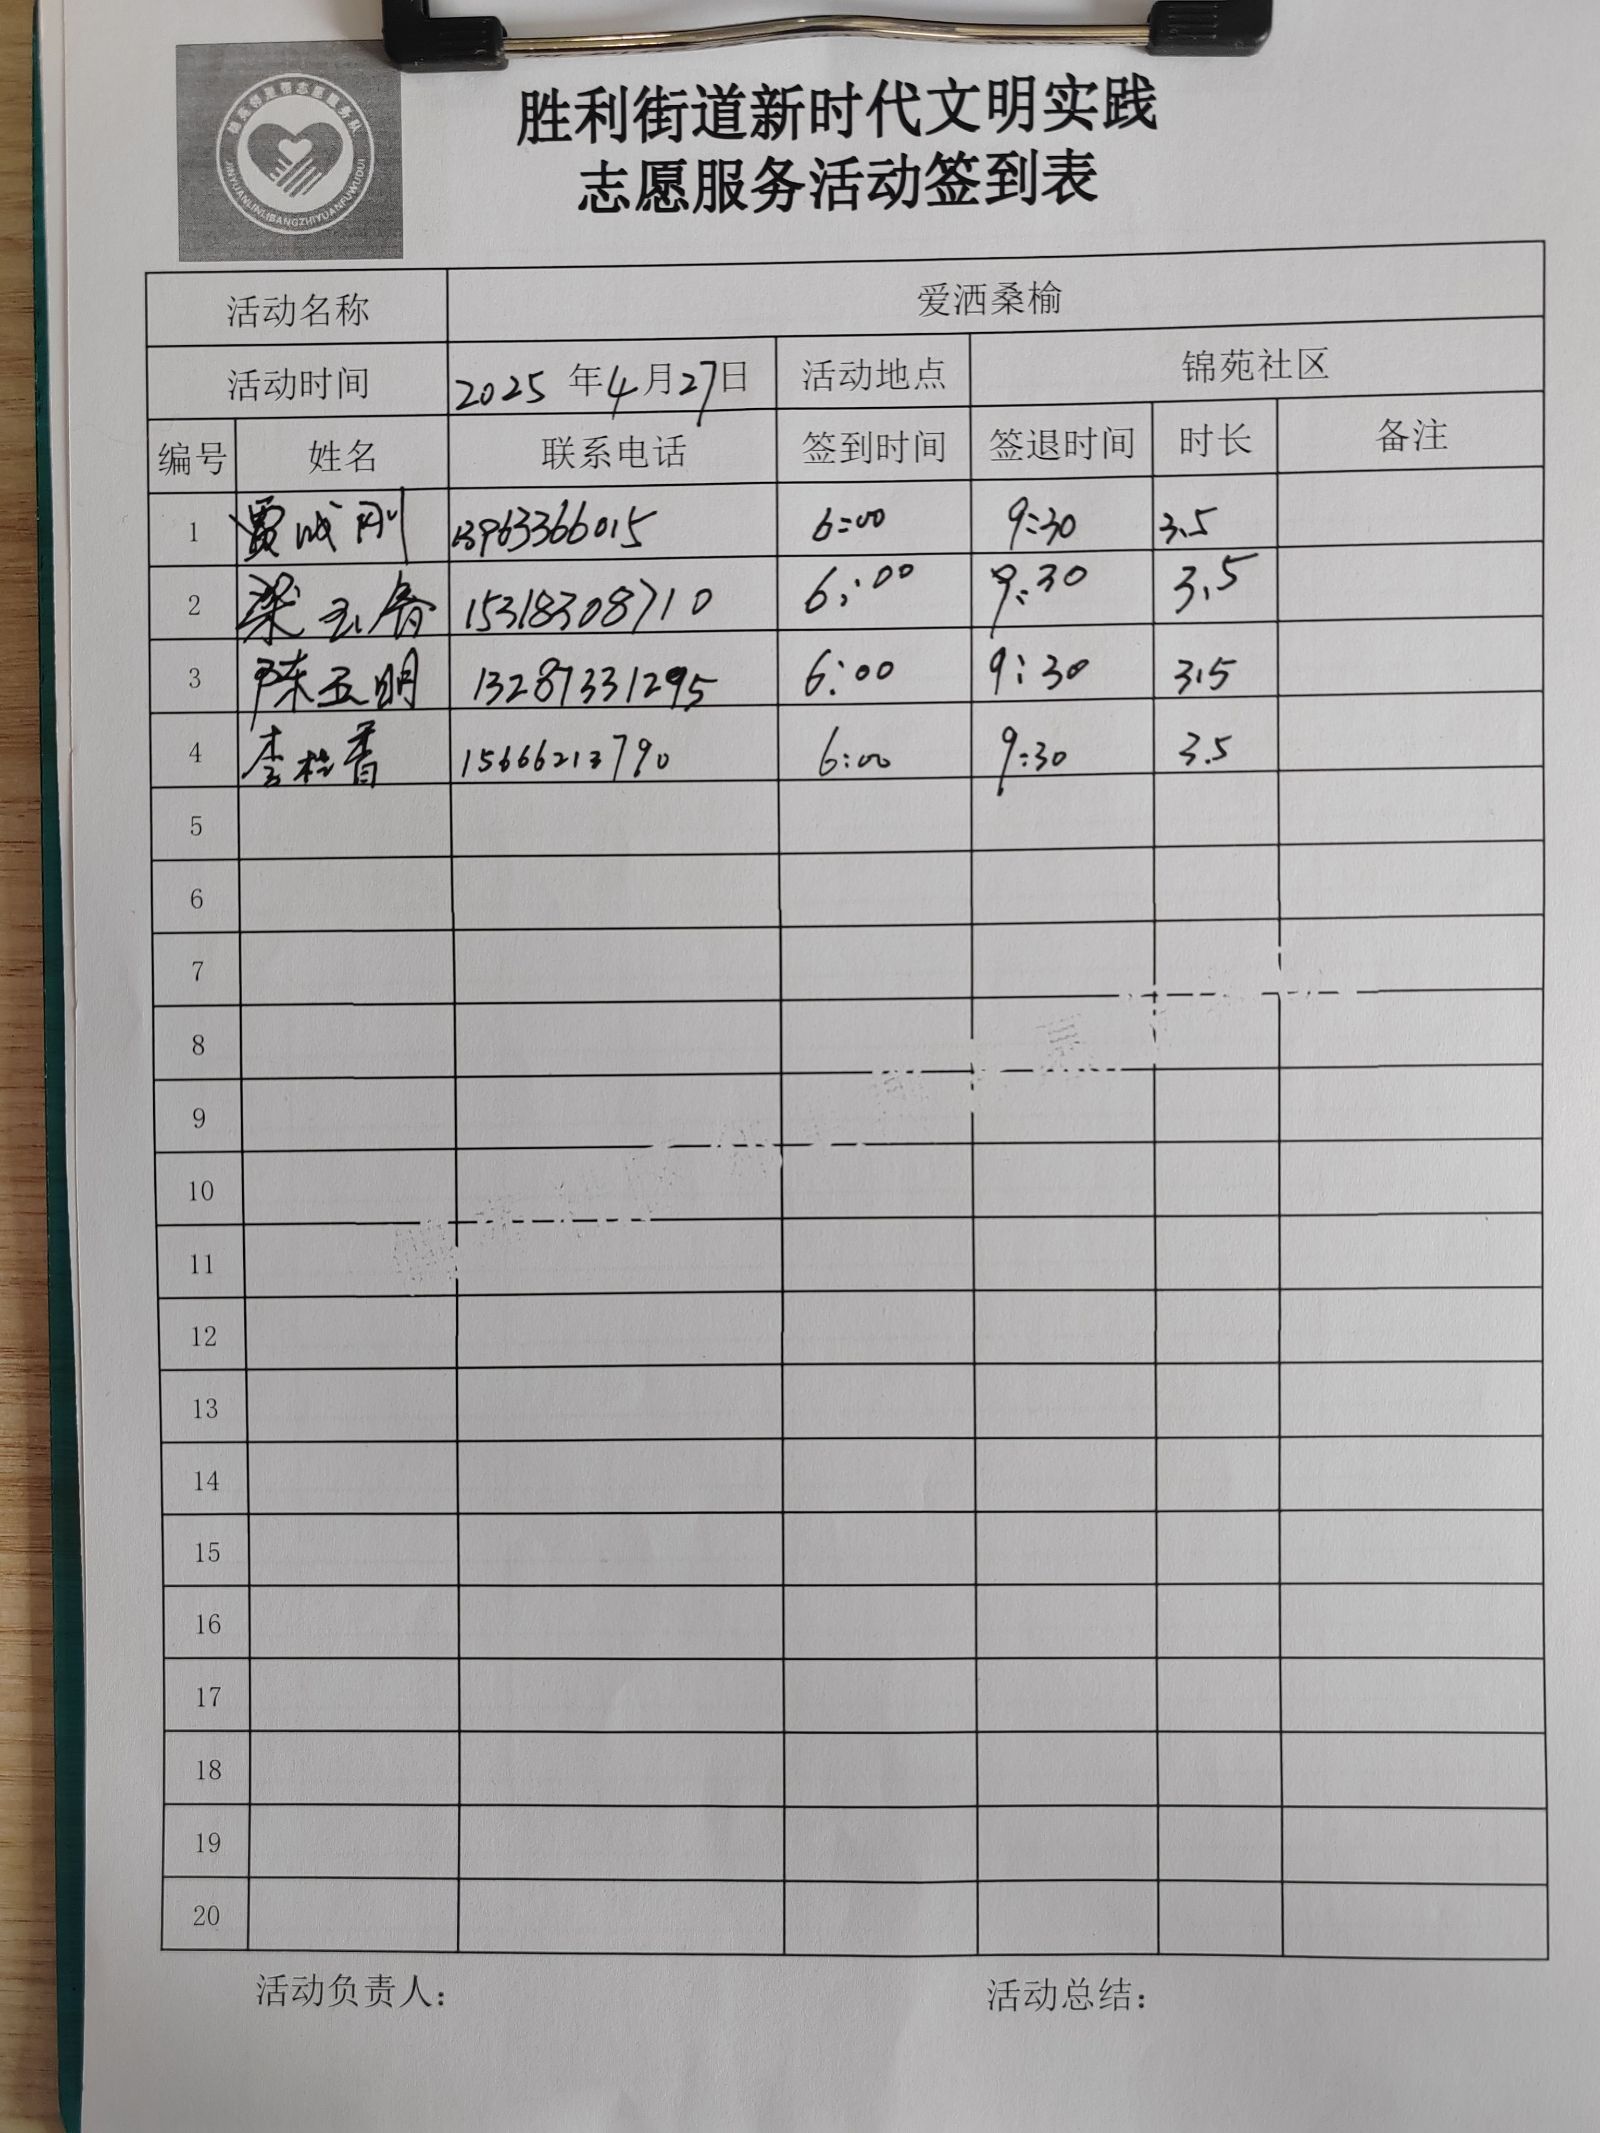 JINYUANLINLIBANGZHIYUANFUWUDUI
胜利街道新时代文明实践
志愿服务活动签到表
活动名称 爱洒桑榆
活动时间 2025年4月27日 活动地点 锦苑社区
编号 姓名 联系电话 签到时间 签退时间 时长 备注
1 贾成刚 13963366015 6:00 9:30 3.5
2 梁玉香 15318308710 6:00 9:30 3.5
3 陈玉明 13287331295 6:00 9:30 3.5
4 李桂香 15666213790 6:00 9:30 3.5
5
6
7
8
9
10
11
12
13
14
15
16
17
18
19
20
活动负责人： 活动总结：